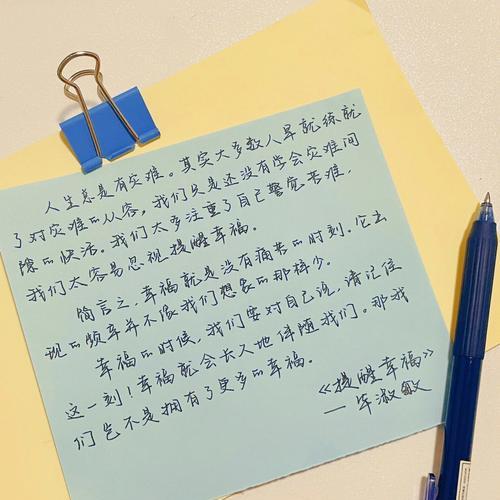 人生总是有灾难。其实大多数人早就练就
了对灾难的从容，我们只是还没有学会灾难间
隙的快活。我们太多注重了自己警觉苦难，
我们太容易忽视提醒幸福。
简言之，幸福就是没有痛苦的时刻。它出
现的频率并不像我们想象的那样少。
幸福的时候，我们要对自己说，请记住
这一刻！幸福就会长久地伴随我们。那我
们岂不是拥有了更多的幸福。
《提醒幸福》
—毕淑敏